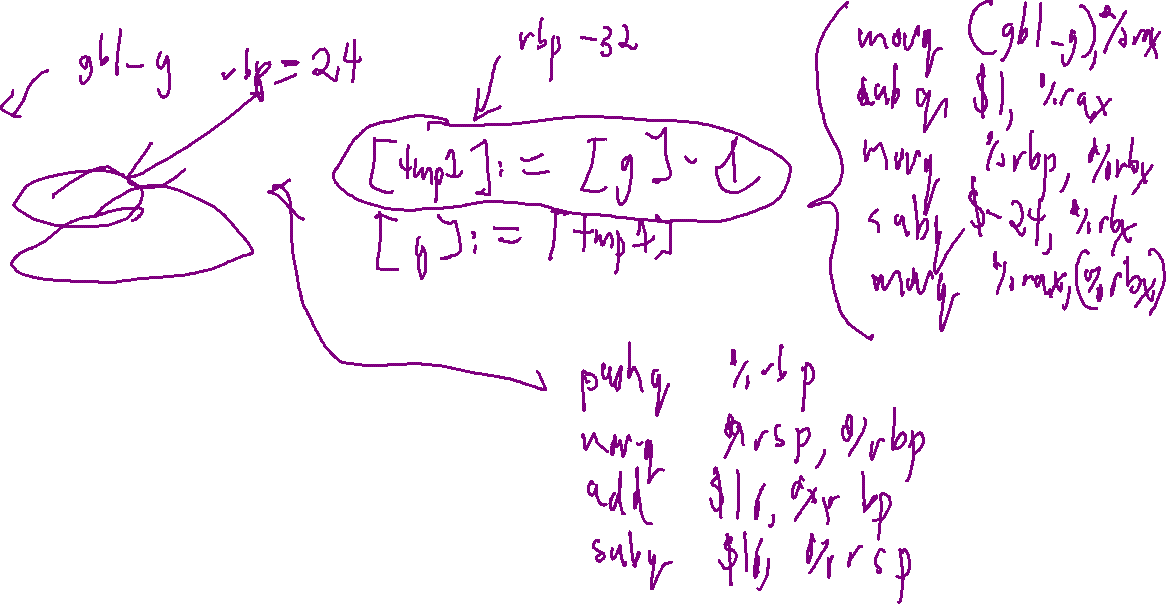 gbl_g
rbp = 24
rbp - 32
[tmp1] := [g] - 1
[g] := [tmp1]
movq (gbl_g), %rax
subq $1, %rax
movq %rbp, %rbx
subq $-24, %rbx
movq %rax, (%rbx)
pushq %rbp
movq %rsp, %rbp
add $16, %rbp
subq $16, %rsp